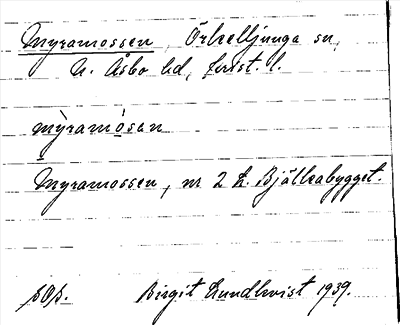 Myramossen, Örkelljunga sn,
N. Åsbo hd, krist. l.
mỳramòsan
Myramossen, nr 2 L. Bjälkabygget.
sOp. Birgit Lundkvist 1939.